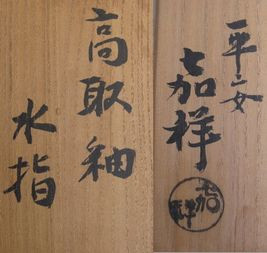 高取釉
水指
平安
嘉祥
嘉祥